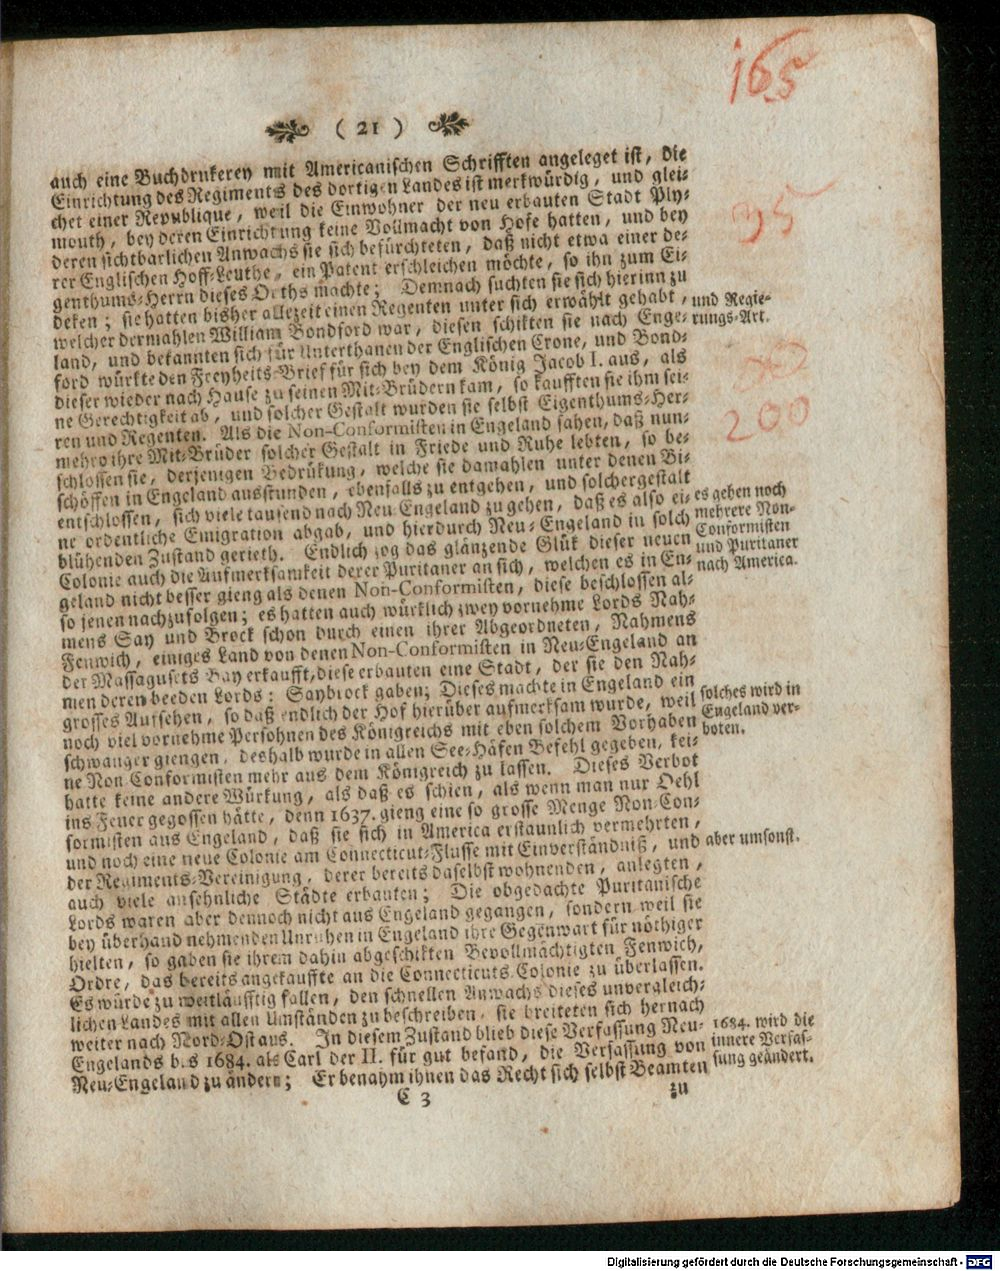 165
( 21 )
auch eine Buchdrukerey mit Americanischen Schrifften angeleget ist, die
Einrichtung des Regiments des dortigen Landes ist merkwürdig, und glei-
chet einer Republique, weil die Einwohner der neu erbauten Stadt Ply-
mouth, bey deren Einrichtung keine Vollmacht von Hofe hatten, und bey
deren sichtbarlichen Anwachs sie sich befürchteten, daß nicht etwa einer de-
rer Englischen Hoff-Leuthe, ein Patent erschleichen möchte, so ihn zum Ei-
genthums-Herrn dieses Orths machte; Demnach suchten sie sich hierinn zu
deken; sie hatten bisher allezeit einen Regenten unter sich erwählt gehabt,
welcher dermahlen William Bondford war, diesen schikten sie nach Enge-
land, und bekannten sich für Unterthanen der Englischen Crone, und Bond-
ford würkte den Freyheits-Brief für sich bey dem König Jacob I. aus, als
dieser wieder nach Hause zu seinen Mit-Brüdern kam, so kaufften sie ihm sei-
ne Gerechtigkeit ab, und solcher Gestalt wurden sie selbst Eigenthums-Her-
ren und Regenten. Als die Non-Conformisten in Engeland sahen, daß nun-
mehro ihre Mit-Brüder solcher Gestalt in Friede und Ruhe lebten, so be-
schlossen sie, derjenigen Bedrükung, welche sie damahlen unter denen Bi-
schöffen in Engeland ausstunden, ebenfalls zu entgehen, und solchergestalt
entschlossen, sich viele tausend nach Neu-Engeland zu gehen, daß es also ei-
ne ordentliche Emigration abgab, und hierdurch Neu-Engeland in solch
blühenden Zustand gerieth. Endlich zog das glänzende Glük dieser neuen
Colonie auch die Aufmerksamkeit derer Puritaner an sich, welchen es in En-
geland nicht besser gieng als denen Non-Conformisten, diese beschlossen al-
so jenen nachzufolgen; es hatten auch würklich zwey vornehme Lords Nah-
mens Say und Brock schon durch einen ihrer Abgeordneten, Nahmens
Fenwich, einiges Land von denen Non-Conformisten in Neu-Engeland an
der Massagusets Bay erkaufft, diese erbauten eine Stadt, der sie den Nah-
men deren beeden Lords: Saybrock gaben; Dieses machte in Engeland ein
grosses Aufsehen, so daß endlich der Hof hierüber aufmerksam wurde, weil
noch viel vornehme Persohnen des Königreichs mit eben solchem Vorhaben
schwanger giengen, deshalb wurde in allen See-Häfen Befehl gegeben, kei-
ne Non Conformisten mehr aus dem Königreich zu lassen. Dieses Verbot
hatte keine andere Würkung, als daß es schien, als wenn man nur Oehl
ins Feuer gegossen hätte, denn 1637. gieng eine so grosse Menge Non-Con-
formisten aus Engeland, daß sie sich in America erstaunlich vermehrten,
und noch eine neue Colonie am Connecticut-Flusse mit Einverständniß, und
der Regiments-Vereinigung, derer bereits daselbst wohnenden, anlegten,
auch viele ansehnliche Städte erbauten; Die obgedachte Puritanische
Lords waren aber dennoch nicht aus Engeland gegangen, sondern weil sie
bey überhand nehmenden Unruhen in Engeland ihre Gegenwart für nöthiger
hielten, so gaben sie ihrem dahin abgeschikten Bevollmächtigten Fenwich,
Ordre, das bereits angekauffte an die Connecticuts-Colonie zu überlassen.
Es würde zu weitläufftig fallen, den schnellen Anwachs dieses unvergleich-
lichen Landes mit allen Umständen zu beschreiben, sie breiteten sich hernach
weiter nach Nord-Ost aus. In diesem Zustand blieb diese Verfassung Neu-
Engelands bis 1684. als Carl der II. für gut befand, die Verfassung von
Neu-Engeland zu ändern; Er benahm ihnen das Recht sich selbst Beamten
C 3
zu
35
und Regie-
rungs-Art.
200
es gehen noch
mehrere Non-
Conformisten
und Puritaner
nach America.
solches wird in
Engeland ver-
boten.
aber umsonst.
1684. wird die
innere Verfas-
sung geändert.
Digitalisierung gefördert durch die Deutsche Forschungsgemeinschaft - DFG